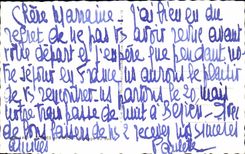 Chère Marraine - j'ai bien eu du
regret de ne pas vs avoir revue avant
votre départ et j'espère que pendant vo-
tre séjour en France ns aurons le plaisir
de vs rencontrer - ns partons le 20 mais
notre train passe de nuit à Béziers -
de bons baisers de ns 2 recevez vos sincères
amitiés